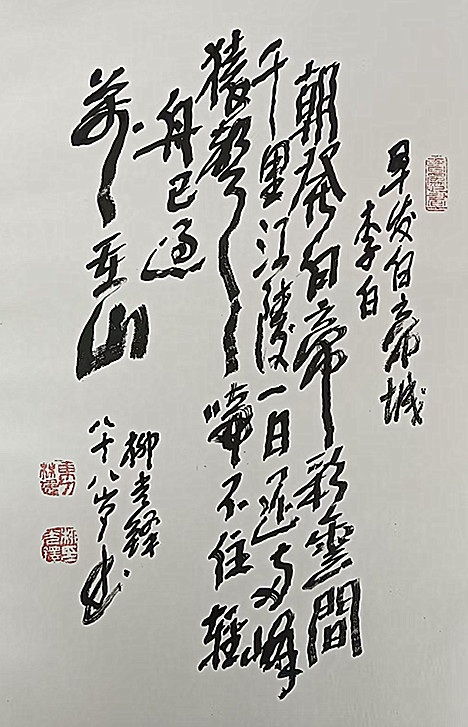 早发白帝城
李白
朝發白帝彩雲間
千里江陵一日還两峰
猿聲啼不住輕
舟已過
萬重山
柳吉
八十八岁书